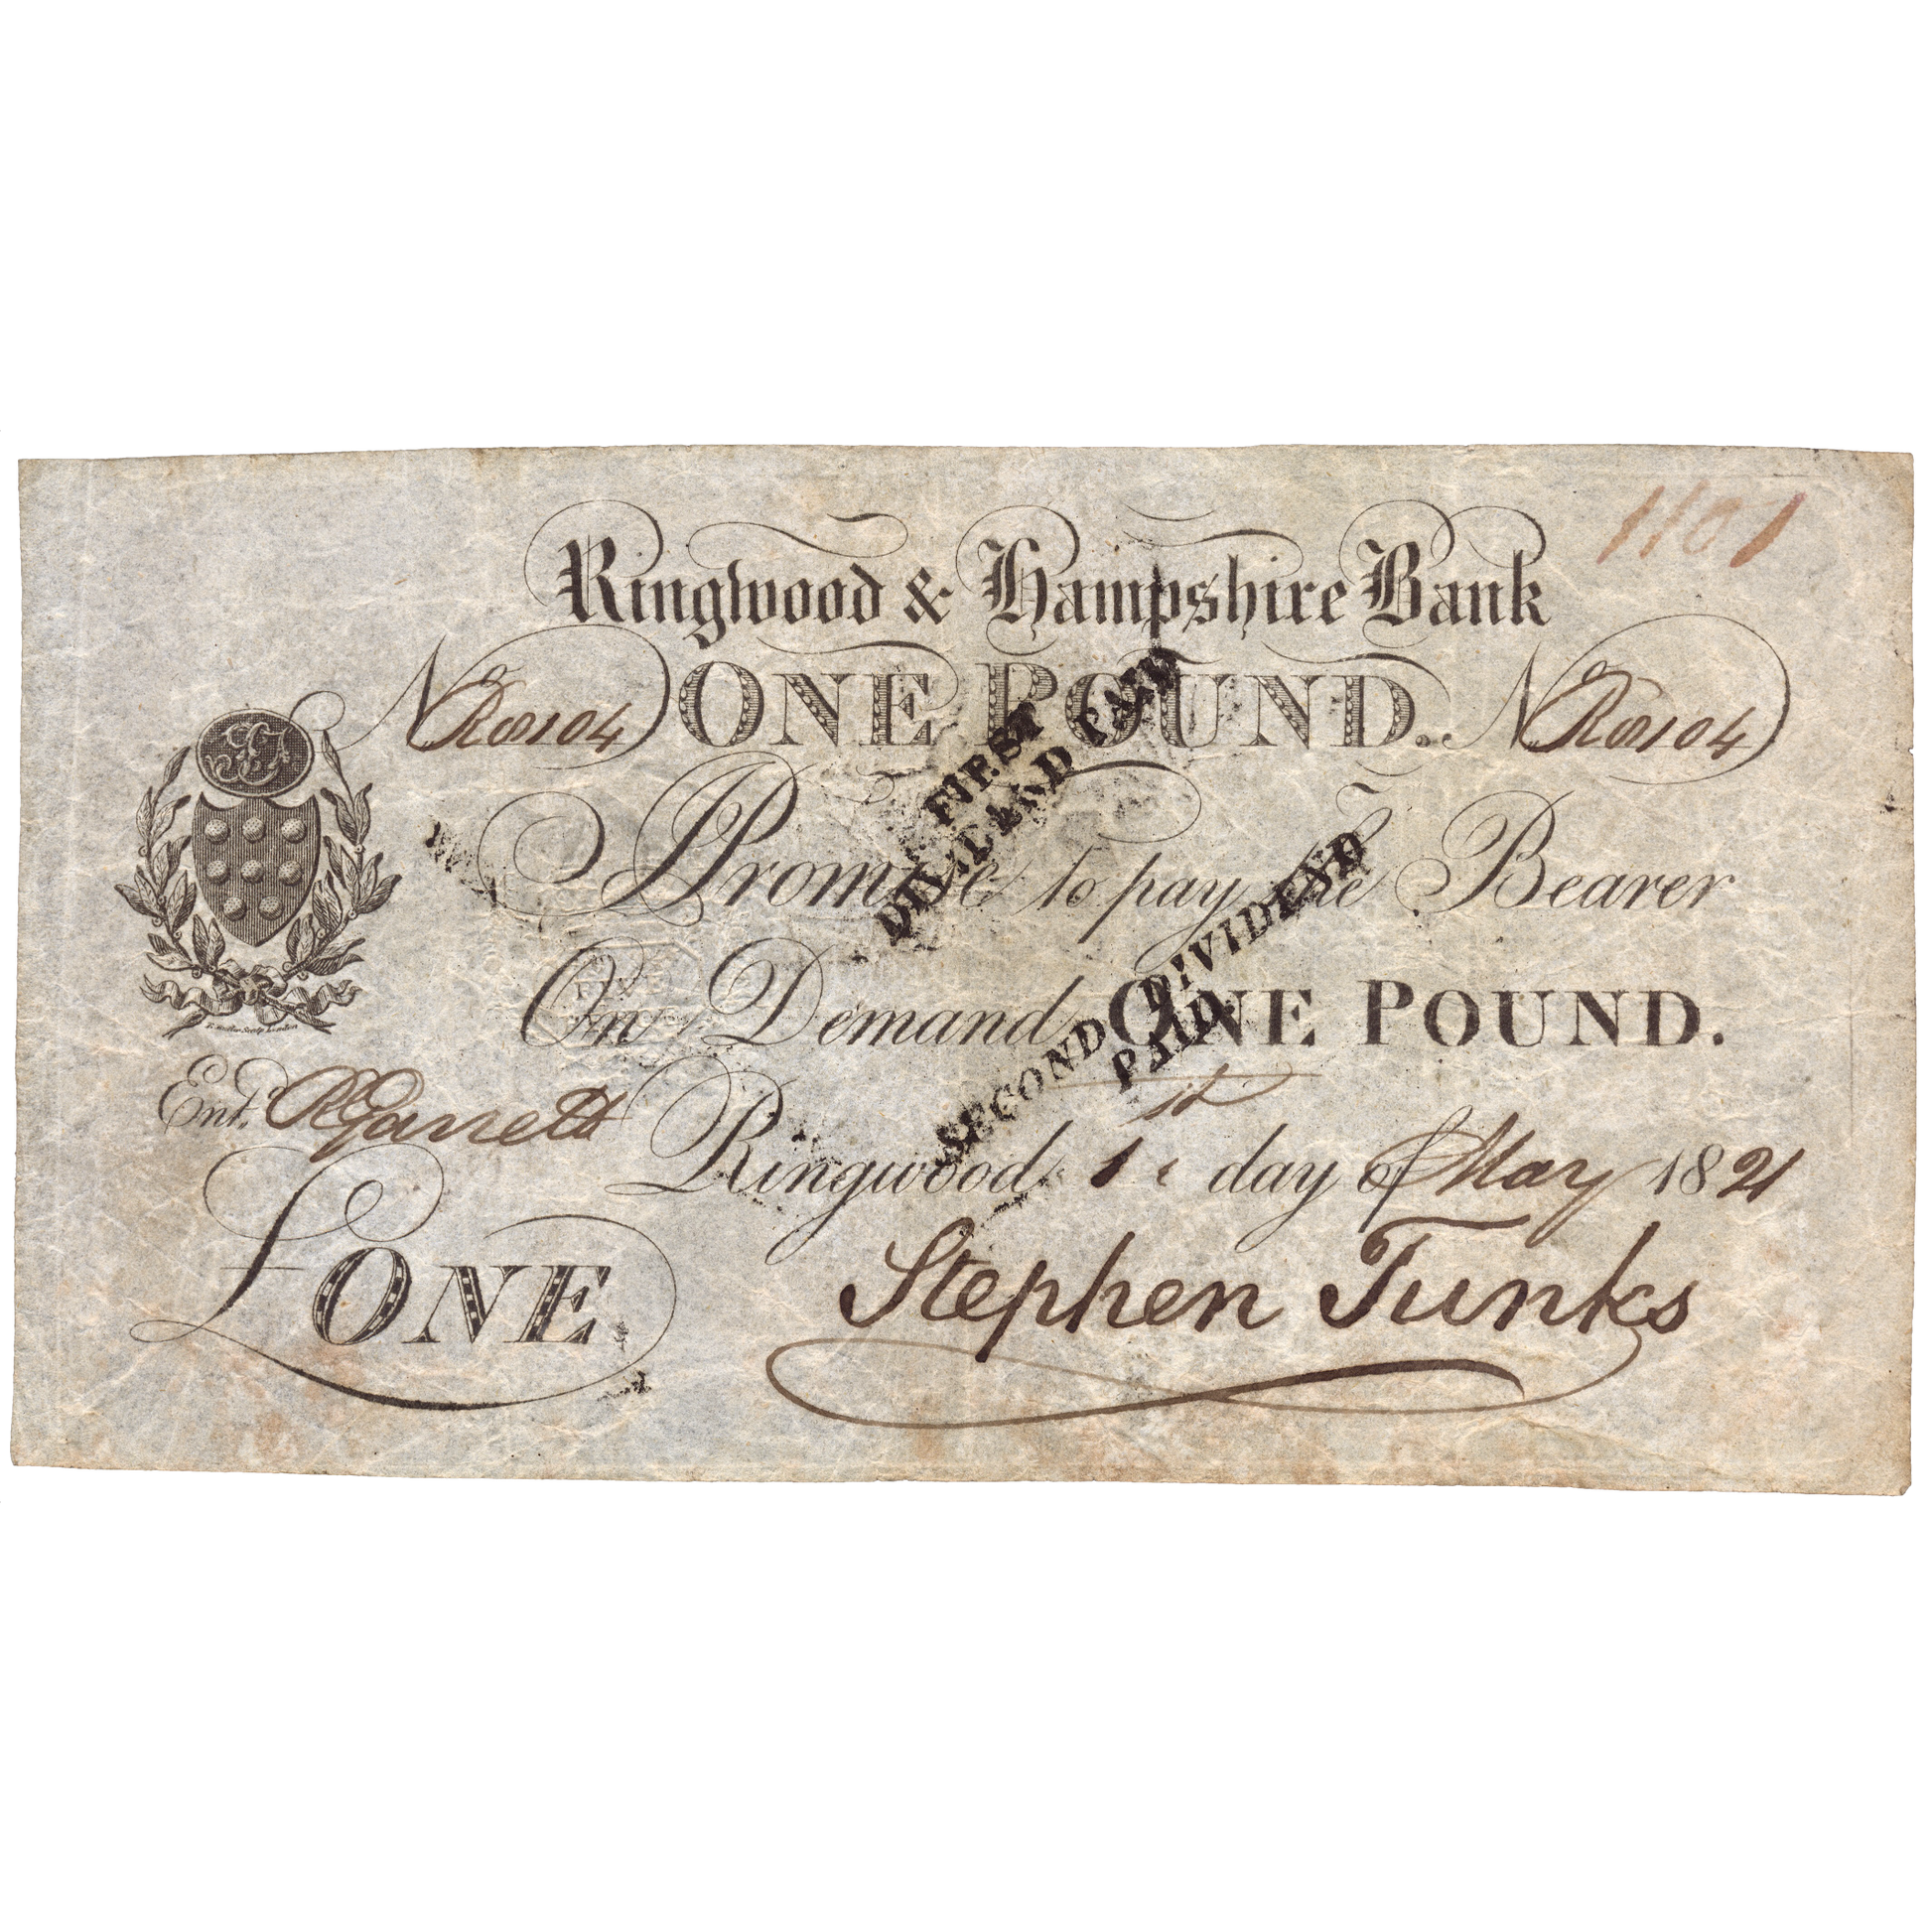 1101
Ringwood & Hampshire Bank
No R8104 ONE POUND. No R8104
I Promise to pay the Bearer
On Demand ONE POUND.
Entd. R Garrett
Ringwood 1st day of May 1821
£ONE.
Stephen Tunks
FIRST
DIVIDEND PAID
SECOND DIVIDEND
PAID